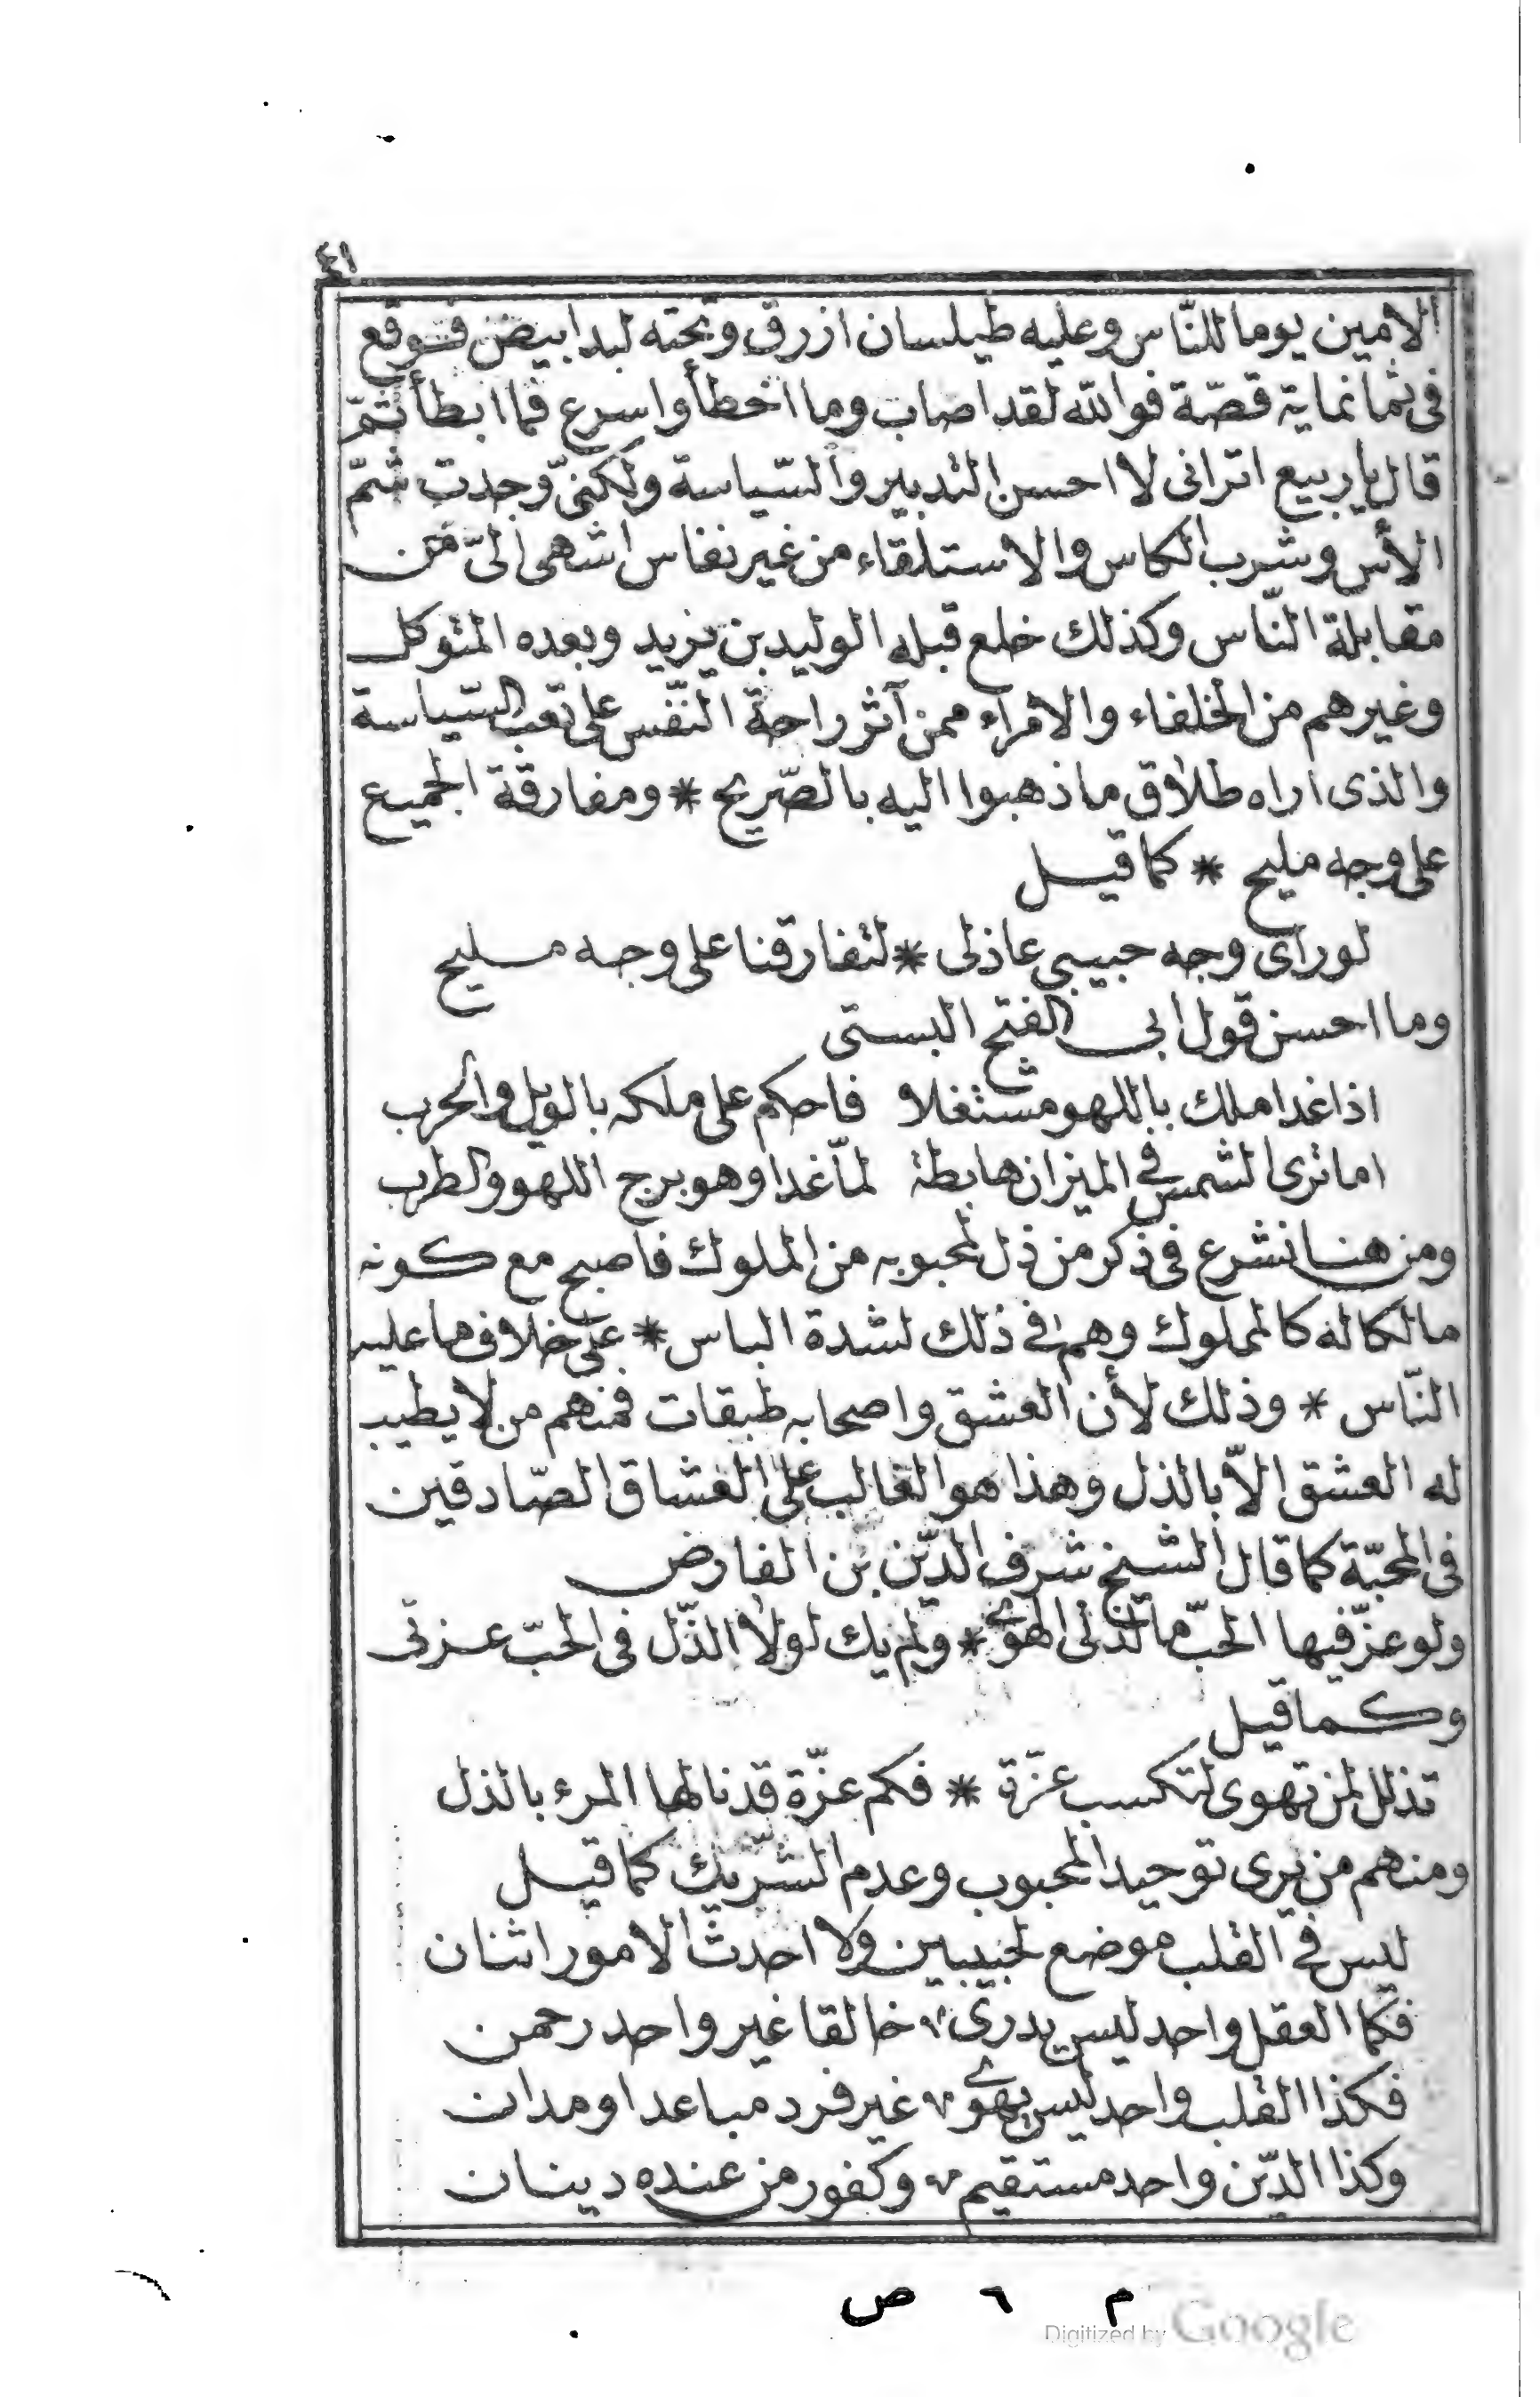 ٤١
الامين يوما للنّاس وعليه طيلسان ازرق وتحته لبد ابيض فوقع
فى ثمانماية قصّة فوالله لقد اصاب وما اخطأ واسرع فما ابطأ ثمّ
قال يا ربيع اترانى لا احسن التدبير والسّياسة ولكنّى وجدت شمّ
الأس وشرب الكاس والاستلقاء من غير نفاس اشهى الىّ من
مقابلة النّاس وكذلك خلع قبله الوليد بن يزيد وبعده المتوكل
وغيرهم من الخلفاء والامراء ممن آثر راحة النّفس على تعب السّياسة
والذى اراه طلاق ما ذهبوا اليه بالصّريح * ومفارقة الجميع
على وجه مليح * كما قيل
لو راى وجه حبيبى عاذلى * لتفارقنا على وجه مليح
وما احسن قول ابى الفتح البستى
اذا غدا ملك باللهو مشتغلا فاحكم على ملكه بالويل والحرب
اما ترى الشمس فى الميزان هابطة لمّا غدا وهو برج اللهو والطرب
ومن هنا نشرع فى ذكر من ذل لمحبوبه من الملوك فاصبح مع كونه
مالكا له كالمملوك وهم فى ذلك لشدة الباس * على خلاف ما عليه
النّاس * وذلك لأن العشق واصحابه طبقات فمنهم من لا يطيب
له العشق الاّ بالذل وهذا هو الغالب على العشاق الصّادقين
فى المحبّة كما قال الشيخ شرف الدّين بن الفارض
ولو عزّ فيها الحبّ ما لذّ لى الهوى * ولم يك لولا الذّل فى الحبّ عزتى
وكما قيل
تذلل لمن تهوى لتكسب عزّة * فكم عزّة قد نالها المرء بالذل
ومنهم من يرى توحيد المحبوب وعدم الشّريك كما قيل
ليس فى القلب موضع لحبيبين ولا احدث الامور اثنان
فكما العقل واحد ليس يدرى خالقا غير واحد رحمن
فكذا القلب واحد ليس يهوى غير فرد مباعد او مدان
وكذا الدّين واحد مستقيم وكفور من عنده دينان
م ٦ ص
Digitized by Google